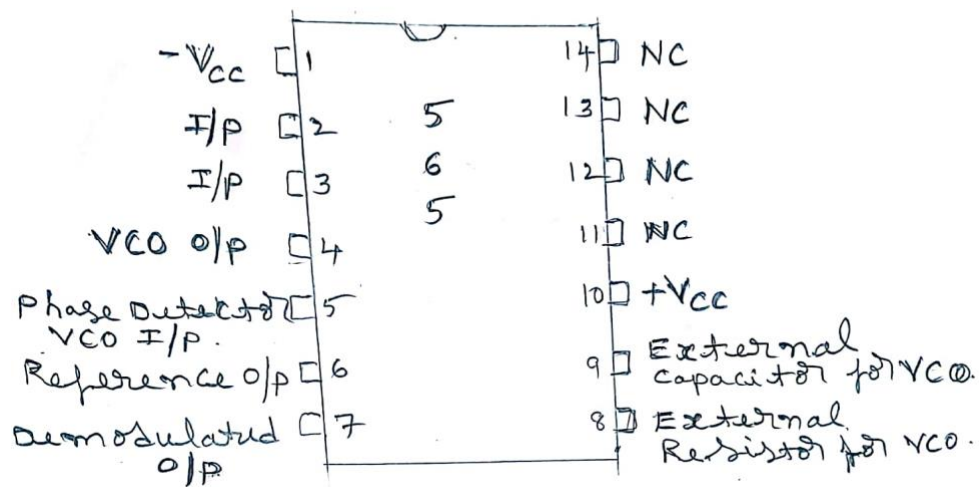 -VCC 1
I/P 2
I/P 3
VCO O/P 4
Phase Detector 5
VCO I/P.
Reference O/P 6
Demodulated 7
O/P
5
6
5
14 NC
13 NC
12 NC
11 NC
10 +VCC
9 External
Capacitor for VCO.
8 External
Resistor for VCO.